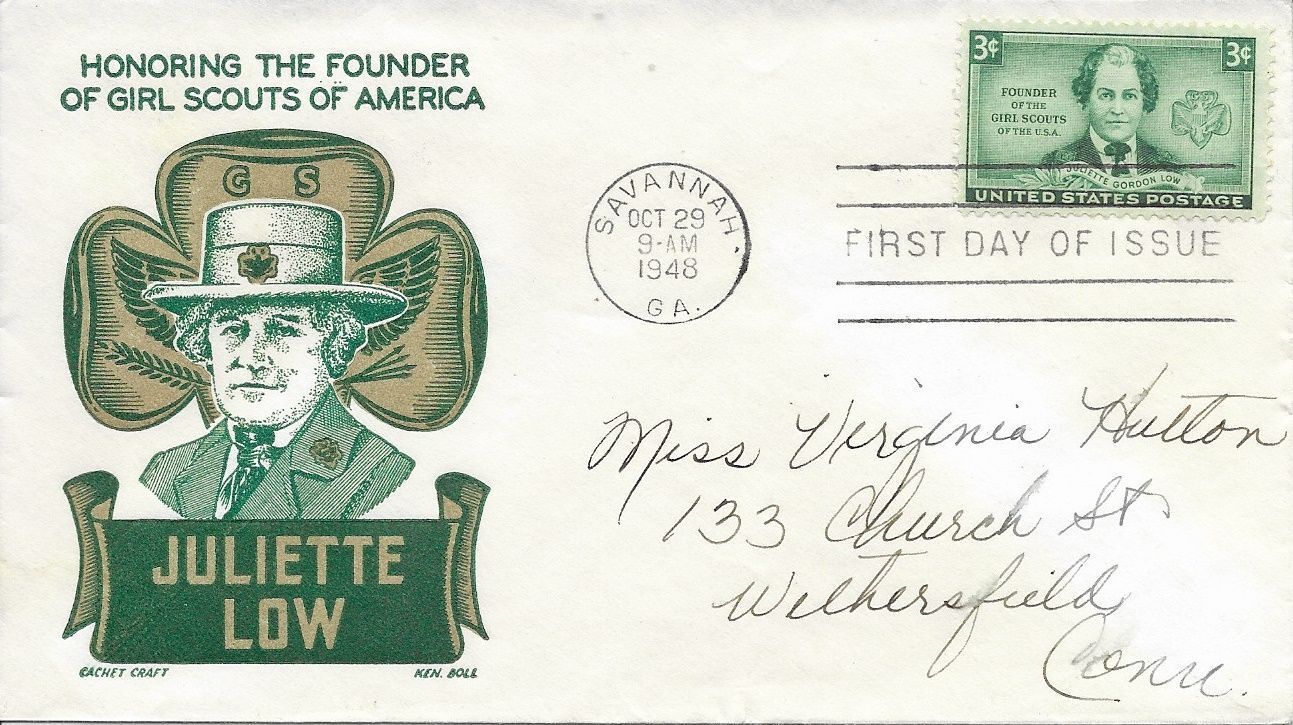 HONORING THE FOUNDER
OF GIRL SCOUTS OF AMERICA
G S
JULIETTE
LOW
CACHET CRAFT
KEN. BOLL
SAVANNAH.
OCT 29
9-AM
1948
GA.
3¢
3¢
FOUNDER
OF THE
GIRL SCOUTS
OF THE U.S.A.
JULIETTE GORDON LOW
UNITED STATES POSTAGE
FIRST DAY OF ISSUE
Miss Virginia Hutton
133 Church St
Wethersfield
Conn.